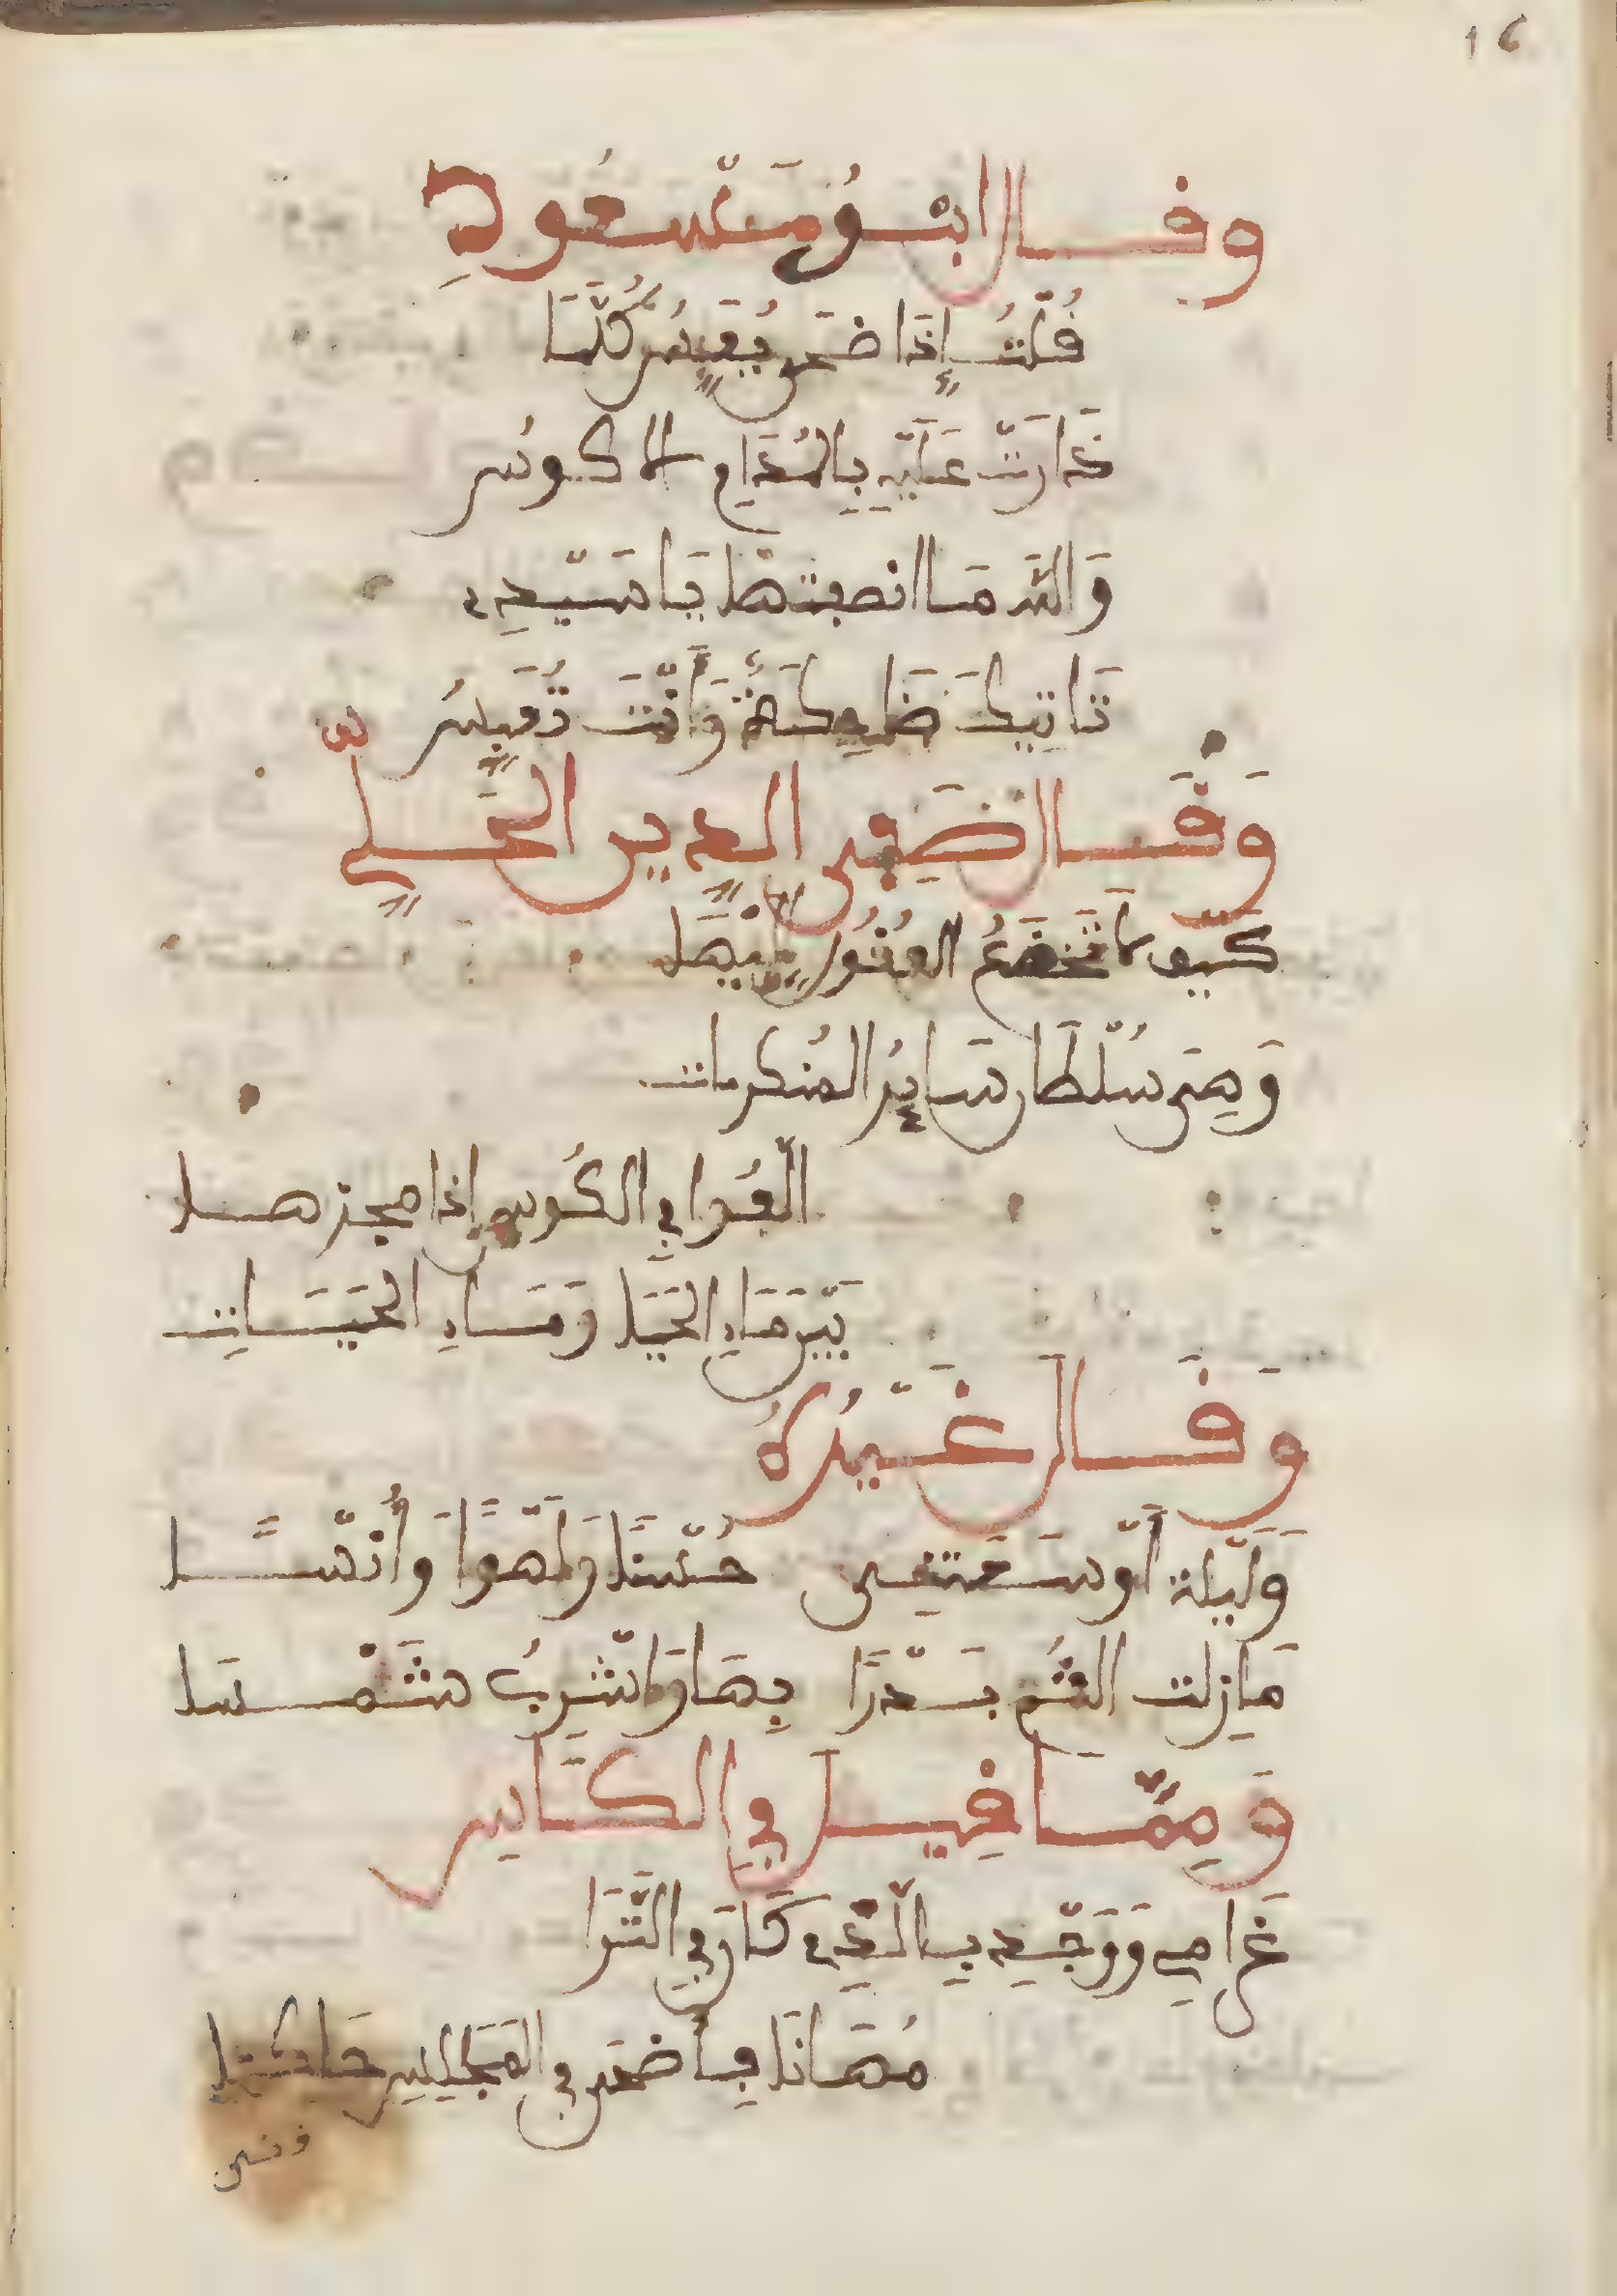 16
وقال ابن مسعود
قلت إذا ضحى يعبس كلما
دارت عليه بالمدام الاكوس
والله ما انصبتها يا سيدي
تاتيك ضاحكة وأنت تعبس
وقال صفي الدين الحلي
كيف لا تخضع العقول إليها
وهي سلطان ساير المنكرات
الفوا في الكوس إذا مجزها
بين ماء الحيا وماء الحيات
وقال غيره
وليلة أوسعتني حسنا ولهوا وأنسا
ما زلت الثم بدرا بها واشرب شمسا
ومما قيل في الكاس
غرامي ووجدي بالذي كان في الثرا
مهانا فأضحى في المجالس